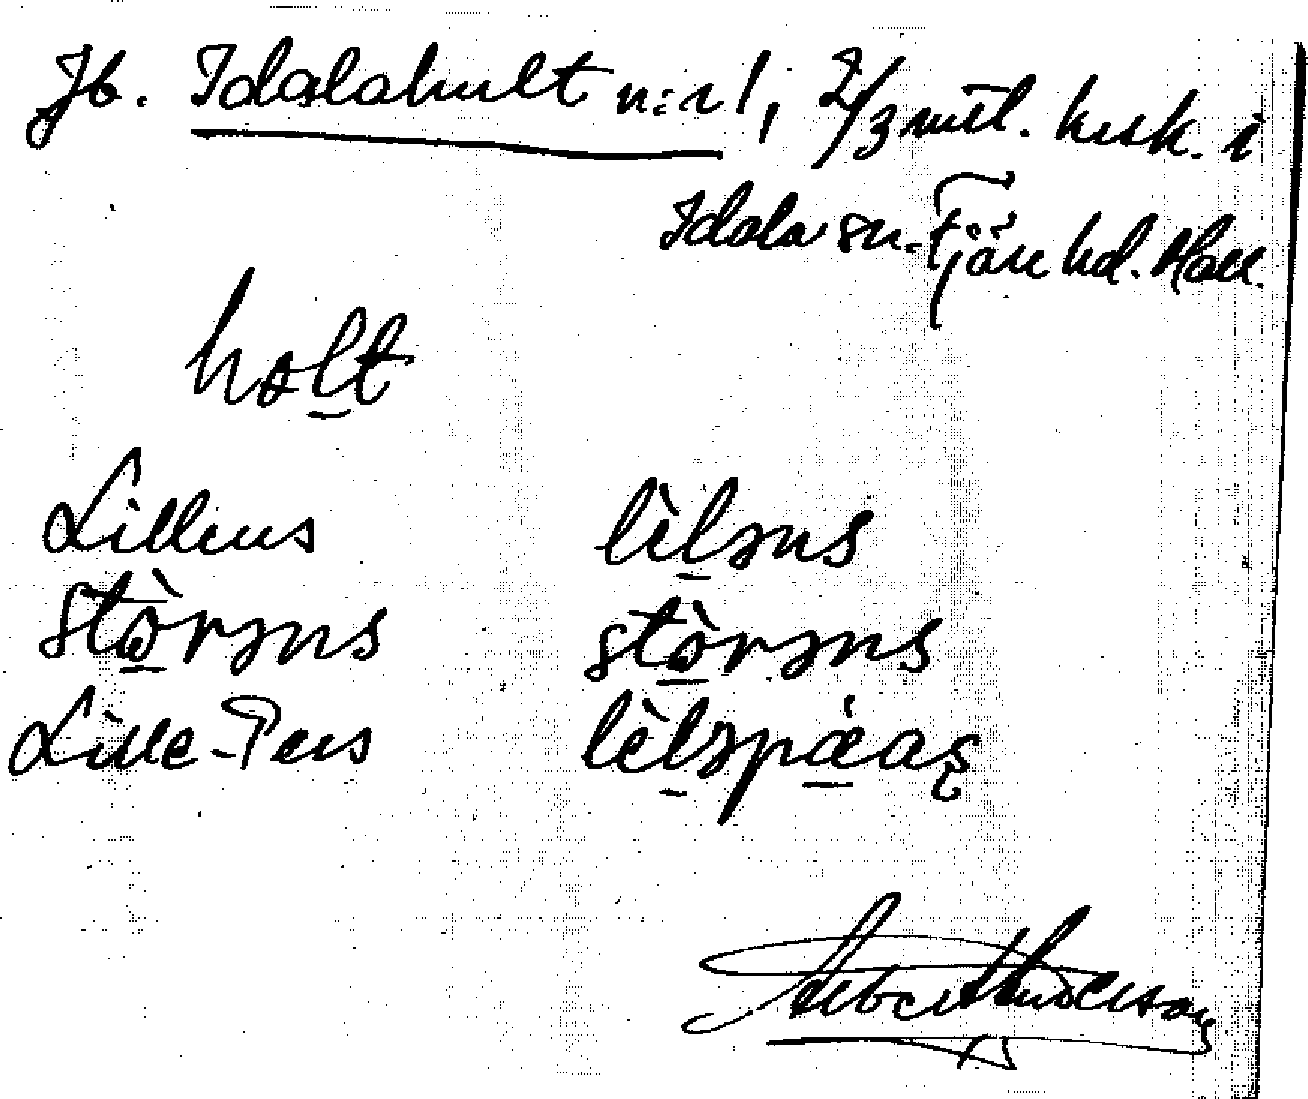 Jb. Idalahult n:r 1, 2/3 mtl. krsk. i
Idala sn. Fjäre hd. Hall.
holt
Lillens lìləns
stòrəns stòrəns
Lille-Pers lìləpǽaʂ
Albert Anderson